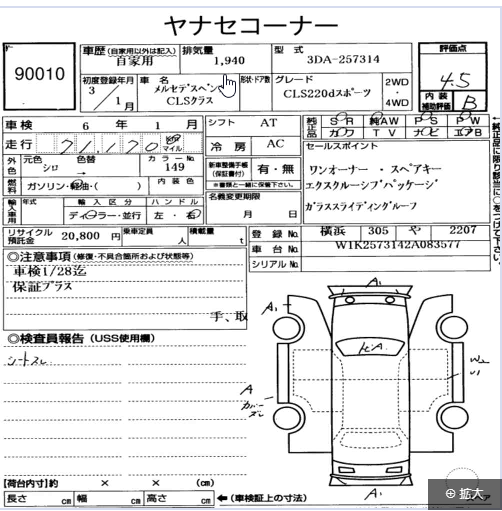 ヤナセコーナー
90010
車歴 (自家用以外は記入) 自家用
排気量 1,940
型式 3DA-257314
評価点 4.5
内装補助評価 B
初度登録年月 3/1月
車名 メルセデスベンツ CLSクラス
形状・ドア数
グレード CLS220dスポーツ
2WD・4WD
車検 6年 1月
シフト AT
純正品 SR 純AW PS PW
カワ TV ナビ エアB
走行 21,120 km マイル
冷房 AC
セールスポイント
外色 元色 シロ 色替 → カラーNo. 149
新車整備手帳(保証書付) 有・無
※書類と一緒に保管下さい。
ワンオーナー ・ スペアキー
エクスクルーシブパッケージ
ガラススライディングルーフ
燃料 ガソリン・軽油・( ) 内装色
名義変更期限 月 日
輸入車用 年式 輸入区分 ディーラー・並行 ハンドル 左・右
←純正品に限り該当に○をつけて下さい。
リサイクル預託金 20,800 円
乗車定員 人
積載量 t
登録No. 横浜 305 や 2207
車台No. W1K2573142A083577
シリアルNo.
◎注意事項 (修復・不具合箇所および状態等)
車検1/28迄
保証プラス
手、取
◎検査員報告 (USS使用欄)
シートスレ
A1
A1
ヒA
A
カバースレ
W2
U1
A1
【荷台内寸】約 × × (cm)
長さ cm 幅 cm 高さ cm
←(車検証上の寸法)
拡大